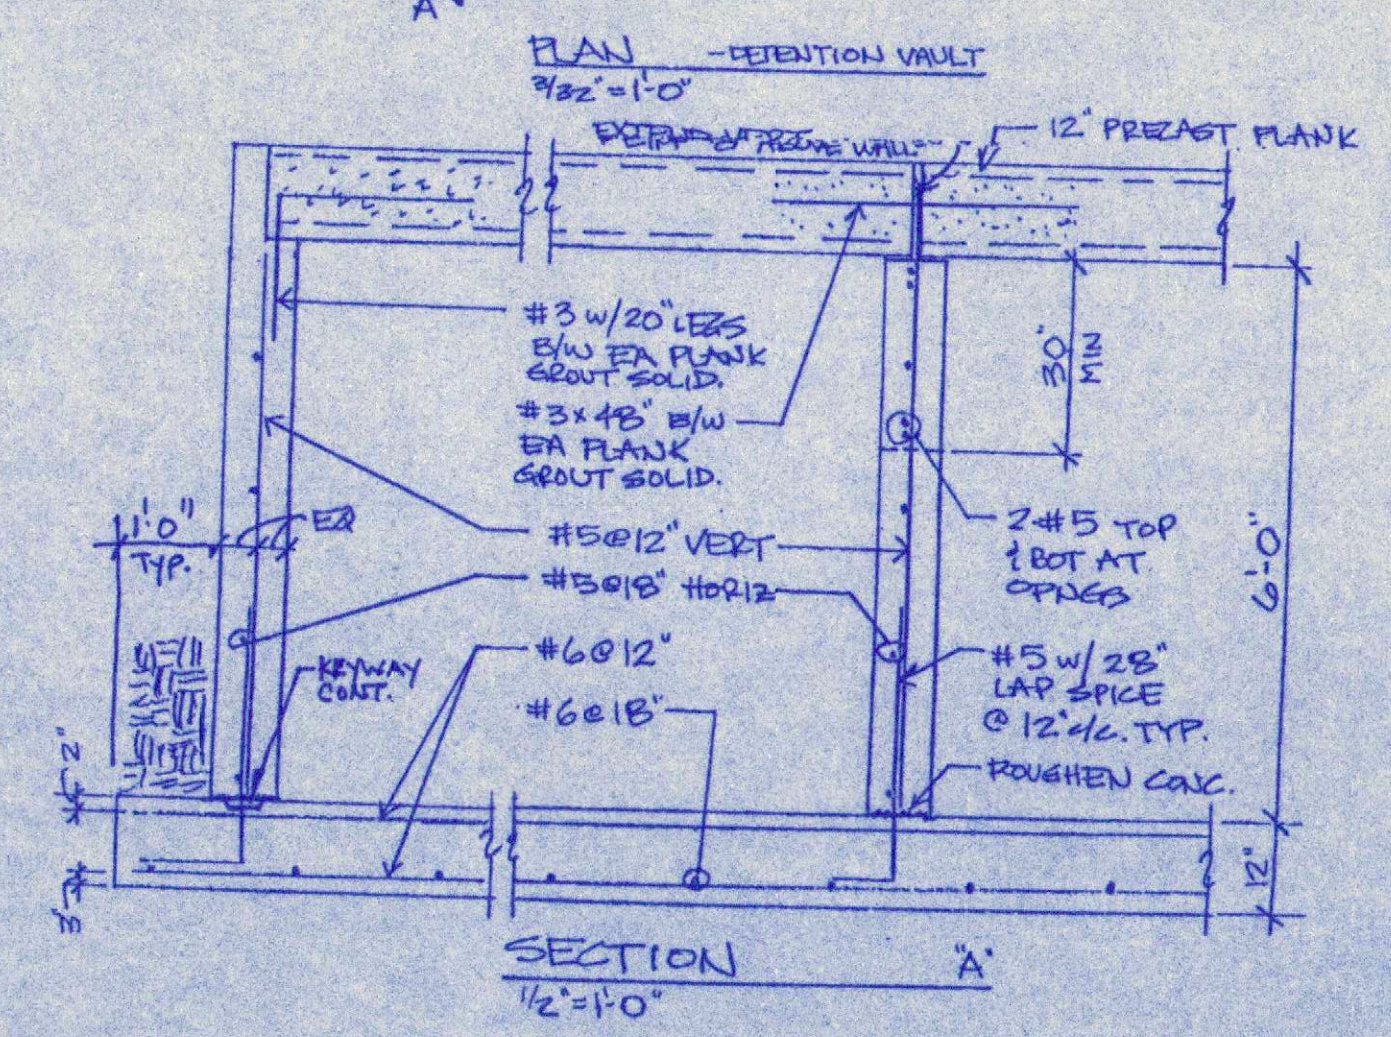 "A"
PLAN - DETENTION VAULT
3/32" = 1'-0"
WALL
12" PRECAST PLANK
#3 W/20" LEGS
B/W EA PLANK
GROUT SOLID.
#3 x 48" B/W
EA PLANK
GROUT SOLID.
30"
MIN
1'-0"
TYP.
EQ
#5@12" VERT
#5@18" HORIZ
2-#5 TOP
& BOT AT
OPNGS
6'-0"
KEYWAY
CONT.
#6@12"
#6@18"
#5 W/ 28"
LAP SPICE
@ 12" c/c. TYP.
ROUGHEN CONC.
2"
3"
12"
SECTION "A"
1/2" = 1'-0"